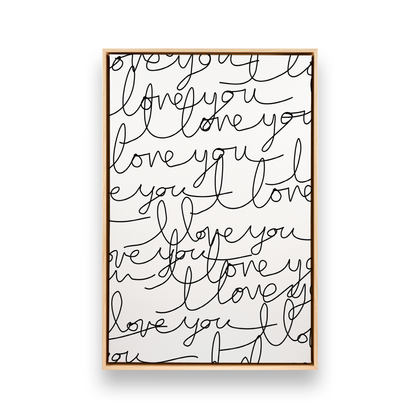 love you I lo
love you
I love you
love you I
e you I love
I love you
ove you I love y
I love y
love you I lo
you I lo